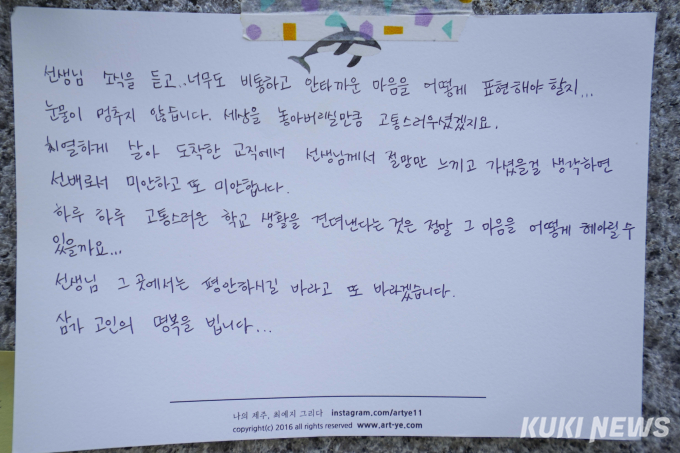 선생님 소식을 듣고..너무도 비통하고 안타까운 마음을 어떻게 표현해야 할지...
눈물이 멈추지 않습니다. 세상을 놓아버리실만큼 고통스러우셨겠지요.
치열하게 살아 도착한 교직에서 선생님께서 절망만 느끼고 가셨을걸 생각하면
선배로서 미안하고 또 미안합니다.
하루 하루 고통스러운 학교 생활을 견뎌낸다는 것은 정말 그 마음을 어떻게 헤아릴 수
있을까요...
선생님 그 곳에서는 평안하시길 바라고 또 바라겠습니다.
삼가 고인의 명복을 빕니다...
나의 제주, 최예지 그리다 instagram.com/artye11
copyright(c) 2016 all rights reserved www.art-ye.com
KUKI NEWS